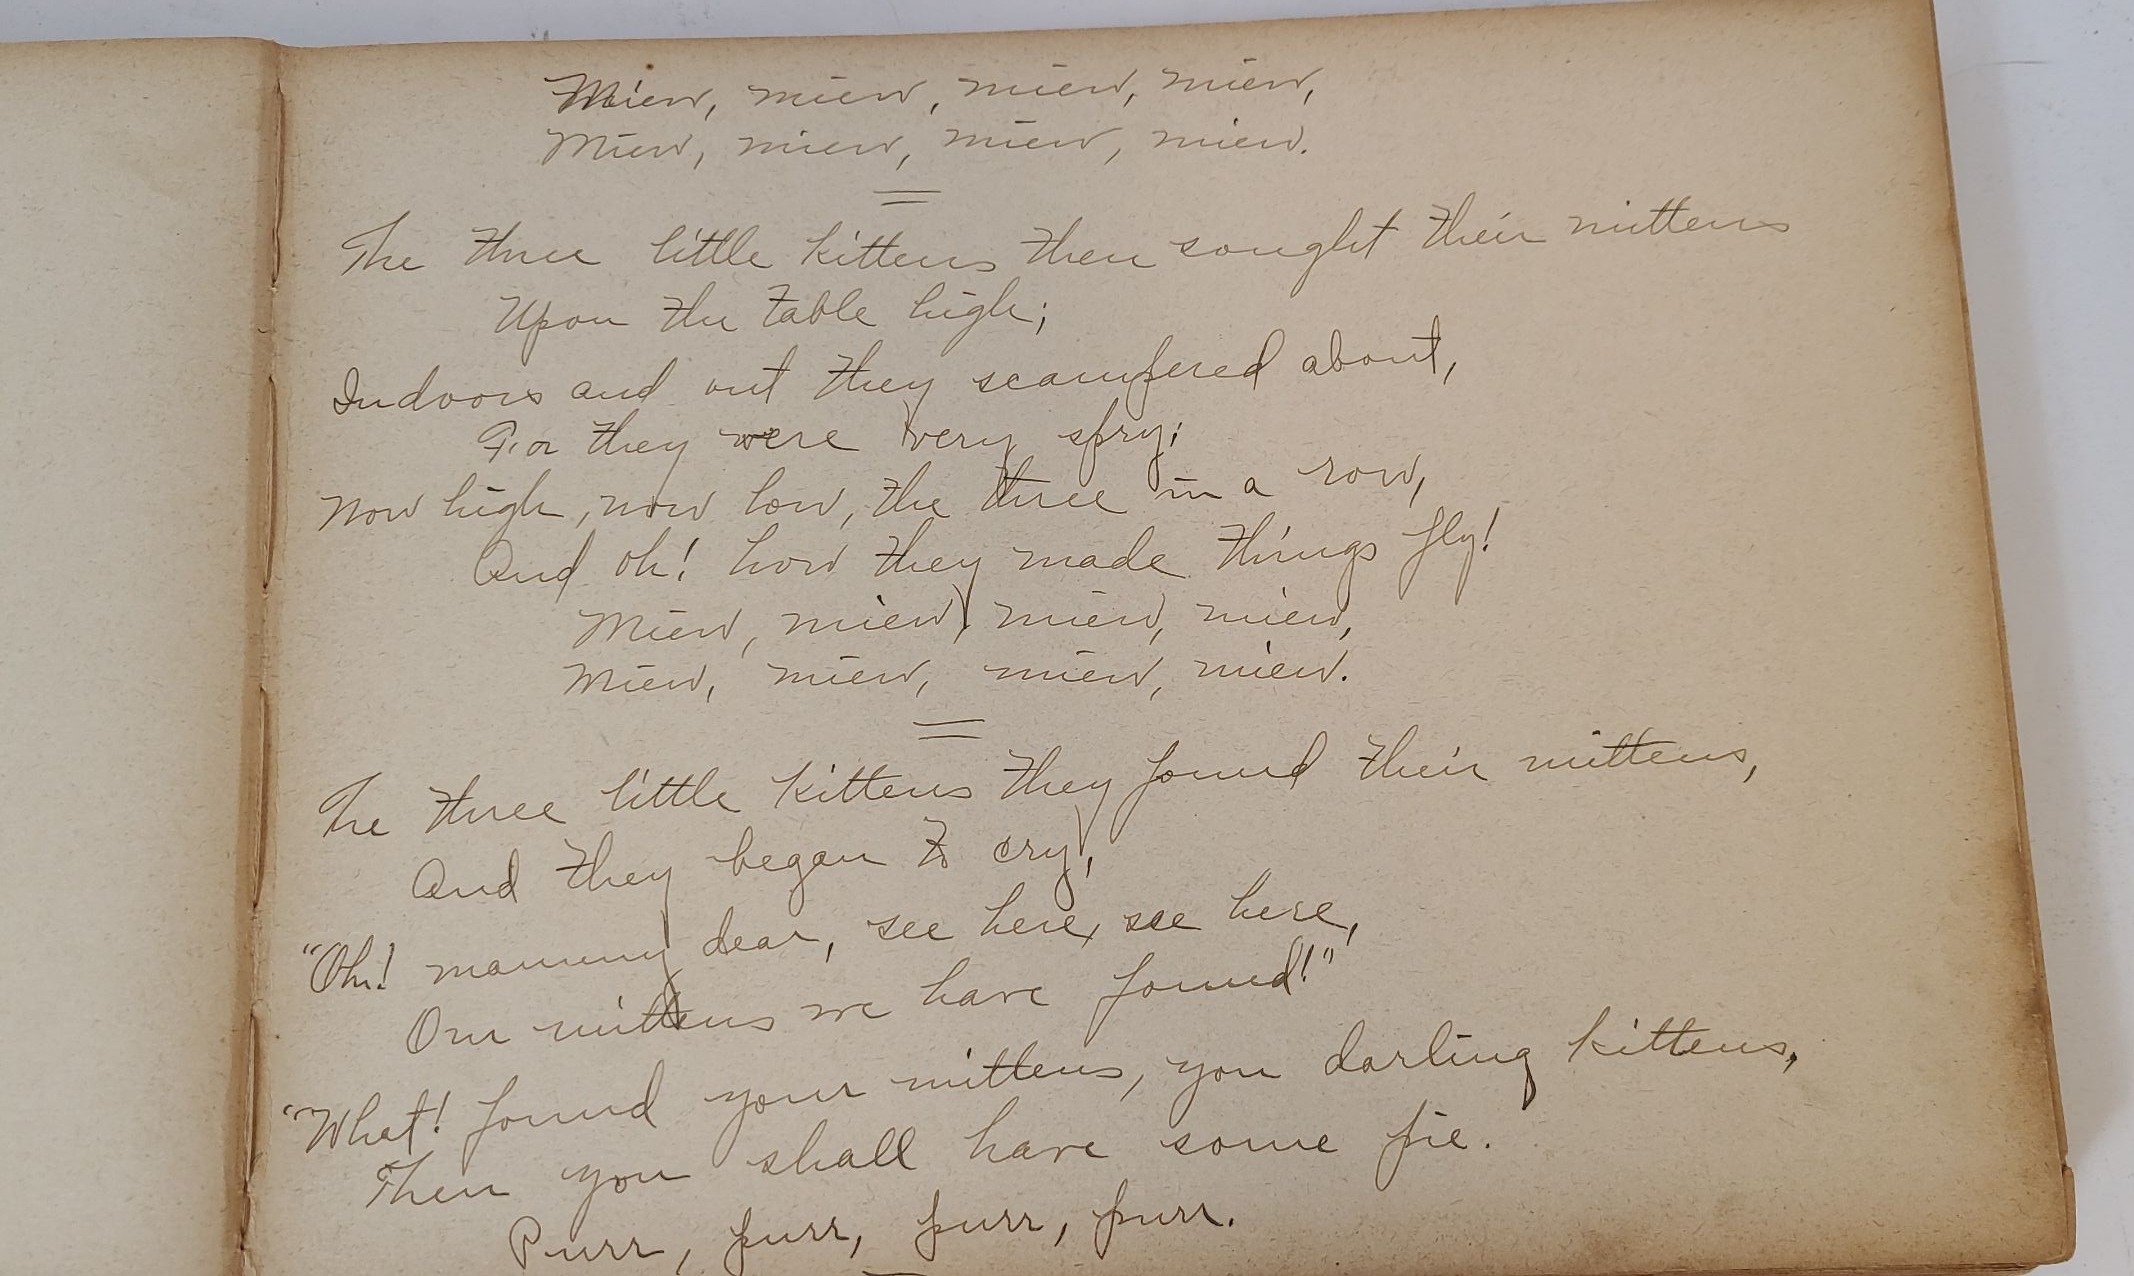 Miew, miew, miew, miew,
Miew, miew, miew, miew.
The three little kittens then sought their mittens
Upon the table high;
Indoors and out they scampered about,
For they were very spry;
Now high, now low, the three in a row,
And oh! how they made things fly!
Miew, miew, miew, miew,
Miew, miew, miew, miew.
The three little kittens they found their mittens,
And they began to cry,
"Oh! mammy dear, see here, see here,
Our mittens we have found!"
"What! found your mittens, you darling kittens,
Then you shall have some pie.
Purr, purr, purr, purr.